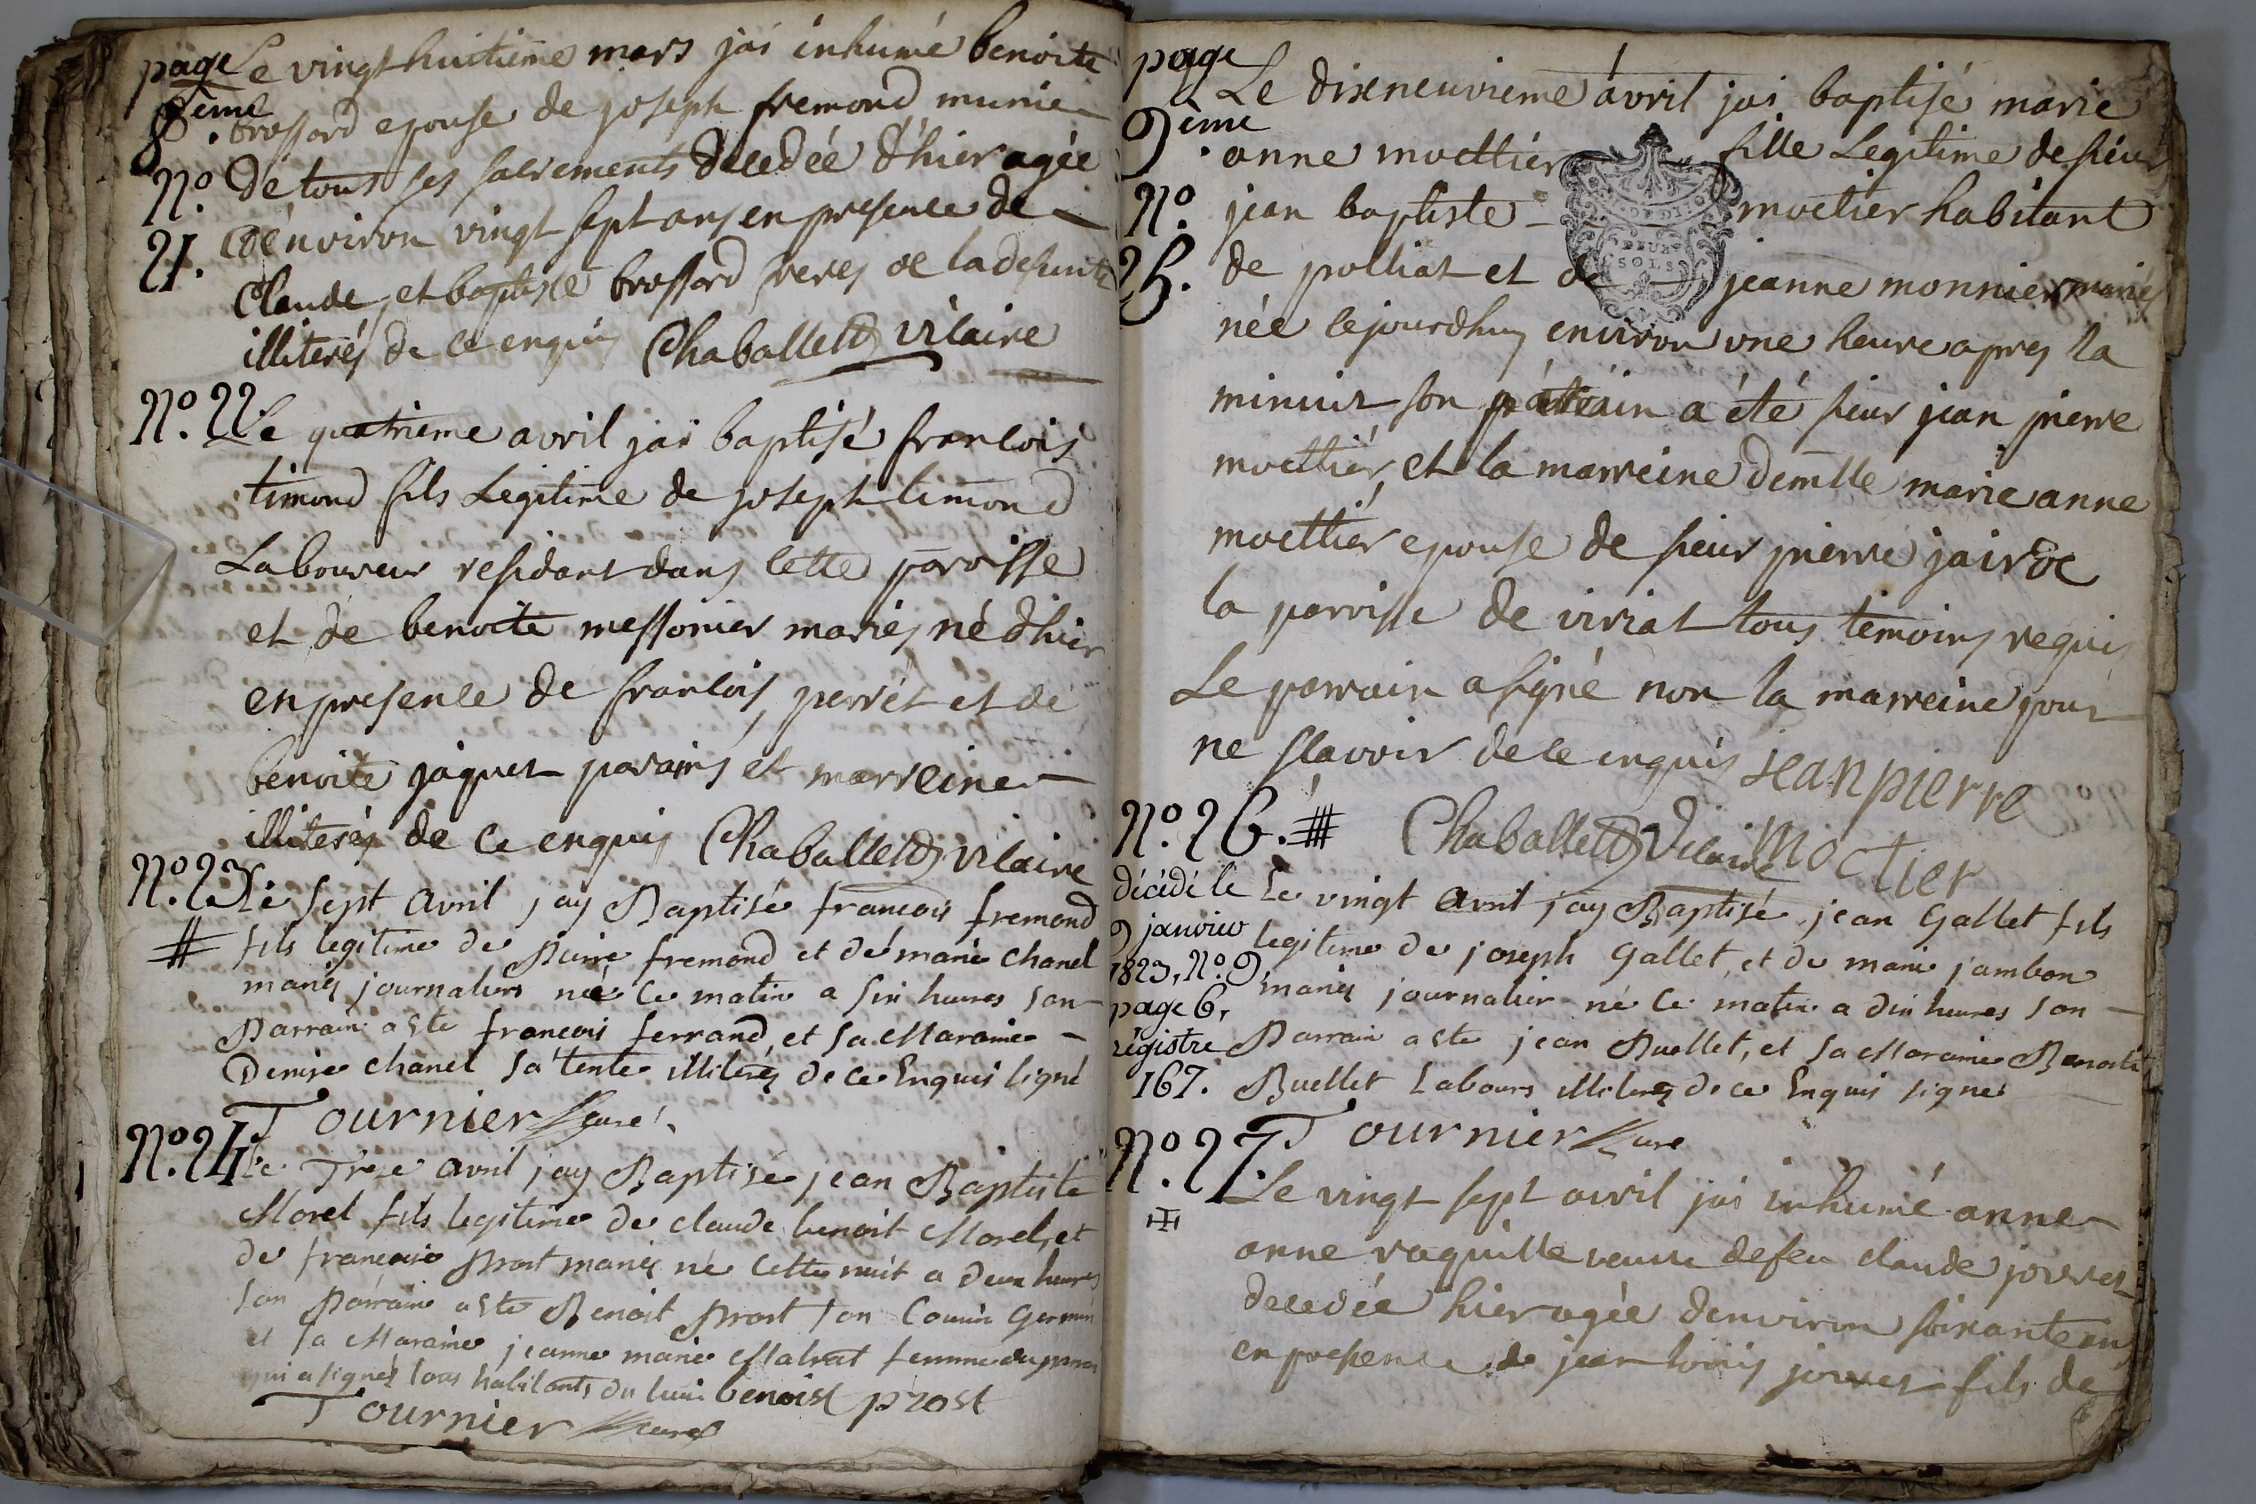 page
8ème.
Le vingt huitième mars jai inhumé benoite
brossard epouse de joseph fremond munie
No. 21.
de tous ses sacrements decedée d'hier agée
d'environ vingt sept ans en presence de
Claude, et baptiste brossard freres de la defunte
illiterés de ce enquis Chaballet vicaire
No. 22.
Le quatrieme avril jai baptisé francois
timond fils Legitime de joseph timond
Laboureur residant dans cette paroisse
et de benoite messonier mariés né d'hier
en presence de francois perrét et de
benoite jaquet parains et marreine
illiterés de ce enquis Chaballet vicaire
No. 23
Le sept avril jay Baptisé francois fremond
#
fils legitime de Pierre fremond et de marie chanel
mariés journaliers né ce matin a six heures son
Parrain a ete francois ferrand, et sa Maraine
Denise chanel sa tente illiterés de ce Enquis signé
Tournier curé
No. 24
Le Treze avril jay Baptisé jean Baptiste
Morel fils legitime de claude benoit Morel, et
de francoise Prost mariés né cette nuit a deux heures
son Parrain a ete Benoit Prost son Cousin Germain
et sa Maraine jeanne marie Malvat femme du
qui a signé tous habitants du lieu benoist prost
Tournier curé
page
9ème.
Le dixneuvieme avril jai baptisé marie
anne moettier fille Legitime de sieur
No. 25.
jean baptiste moetier habitant
DEUX
SOLS
de polliat et de jeanne monnier mariés
née cejourdhuy environ une heure apres la
minuit son parrain a été sieur jean pierre
moettier, et la marreine demlle marie anne
moettier epouse de sieur pierre jair de
la parroisse de viriat tous temoins requis
Le parrain a signé non la marreine pour
ne sçavoir de ce enquis jean pierre
moctier
No. 26. #
Chaballet Vicaire
décédé le
9 janvier
1823, No. 9,
page 6,
régistre
167.
Le vingt avril jay Baptisé jean Gallet fils
legitime de joseph Gallet, et de marie jambon
mariés journalier né ce matin a dix heures son
Parrain a ete jean Buellet, et sa Maraine Benoite
Buellet Labours illiterés de ce Enquis signé
Tournier curé
No. 27.
Le vingt sept avril jai inhumé anne
anne vaquille veuve de feu claude jouvet
decedée hier agée denviron soixante ans
en presence de jean louis jouvet fils de